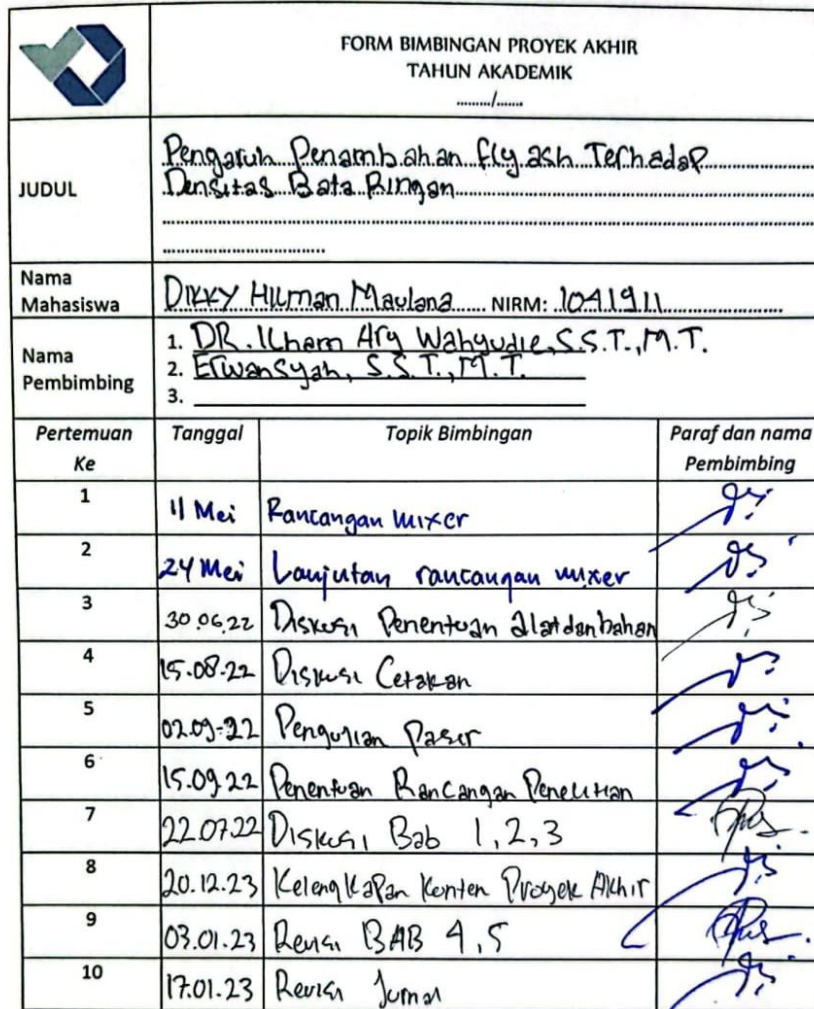 FORM BIMBINGAN PROYEK AKHIR
TAHUN AKADEMIK
........./.......
JUDUL
Pengaruh Penambahan fly ash Terhadap
Densitas Bata Ringan
Nama
Mahasiswa
DIKKY HILMAN Maulana NIRM: 1041911
Nama
Pembimbing
1. DR. Ilham Ary Wahyudie, S.S.T., M.T.
2. Erwansyah, S.S.T., M.T.
3.
Pertemuan Ke Tanggal Topik Bimbingan Paraf dan nama Pembimbing
1 11 Mei Rancangan mixer
2 24 Mei Lanjutan rancangan mixer
3 30.06.22 Diskusi Penentuan alat dan bahan
4 15.08.22 Diskusi Cetakan
5 02.09.22 Pengujian Pasir
6 15.09.22 Penentuan Rancangan Penelitian
7 22.07.22 Diskusi Bab 1, 2, 3
8 20.12.23 Kelengkapan Konten Proyek Akhir
9 03.01.23 Revisi BAB 4, 5
10 17.01.23 Revisi Jurnal